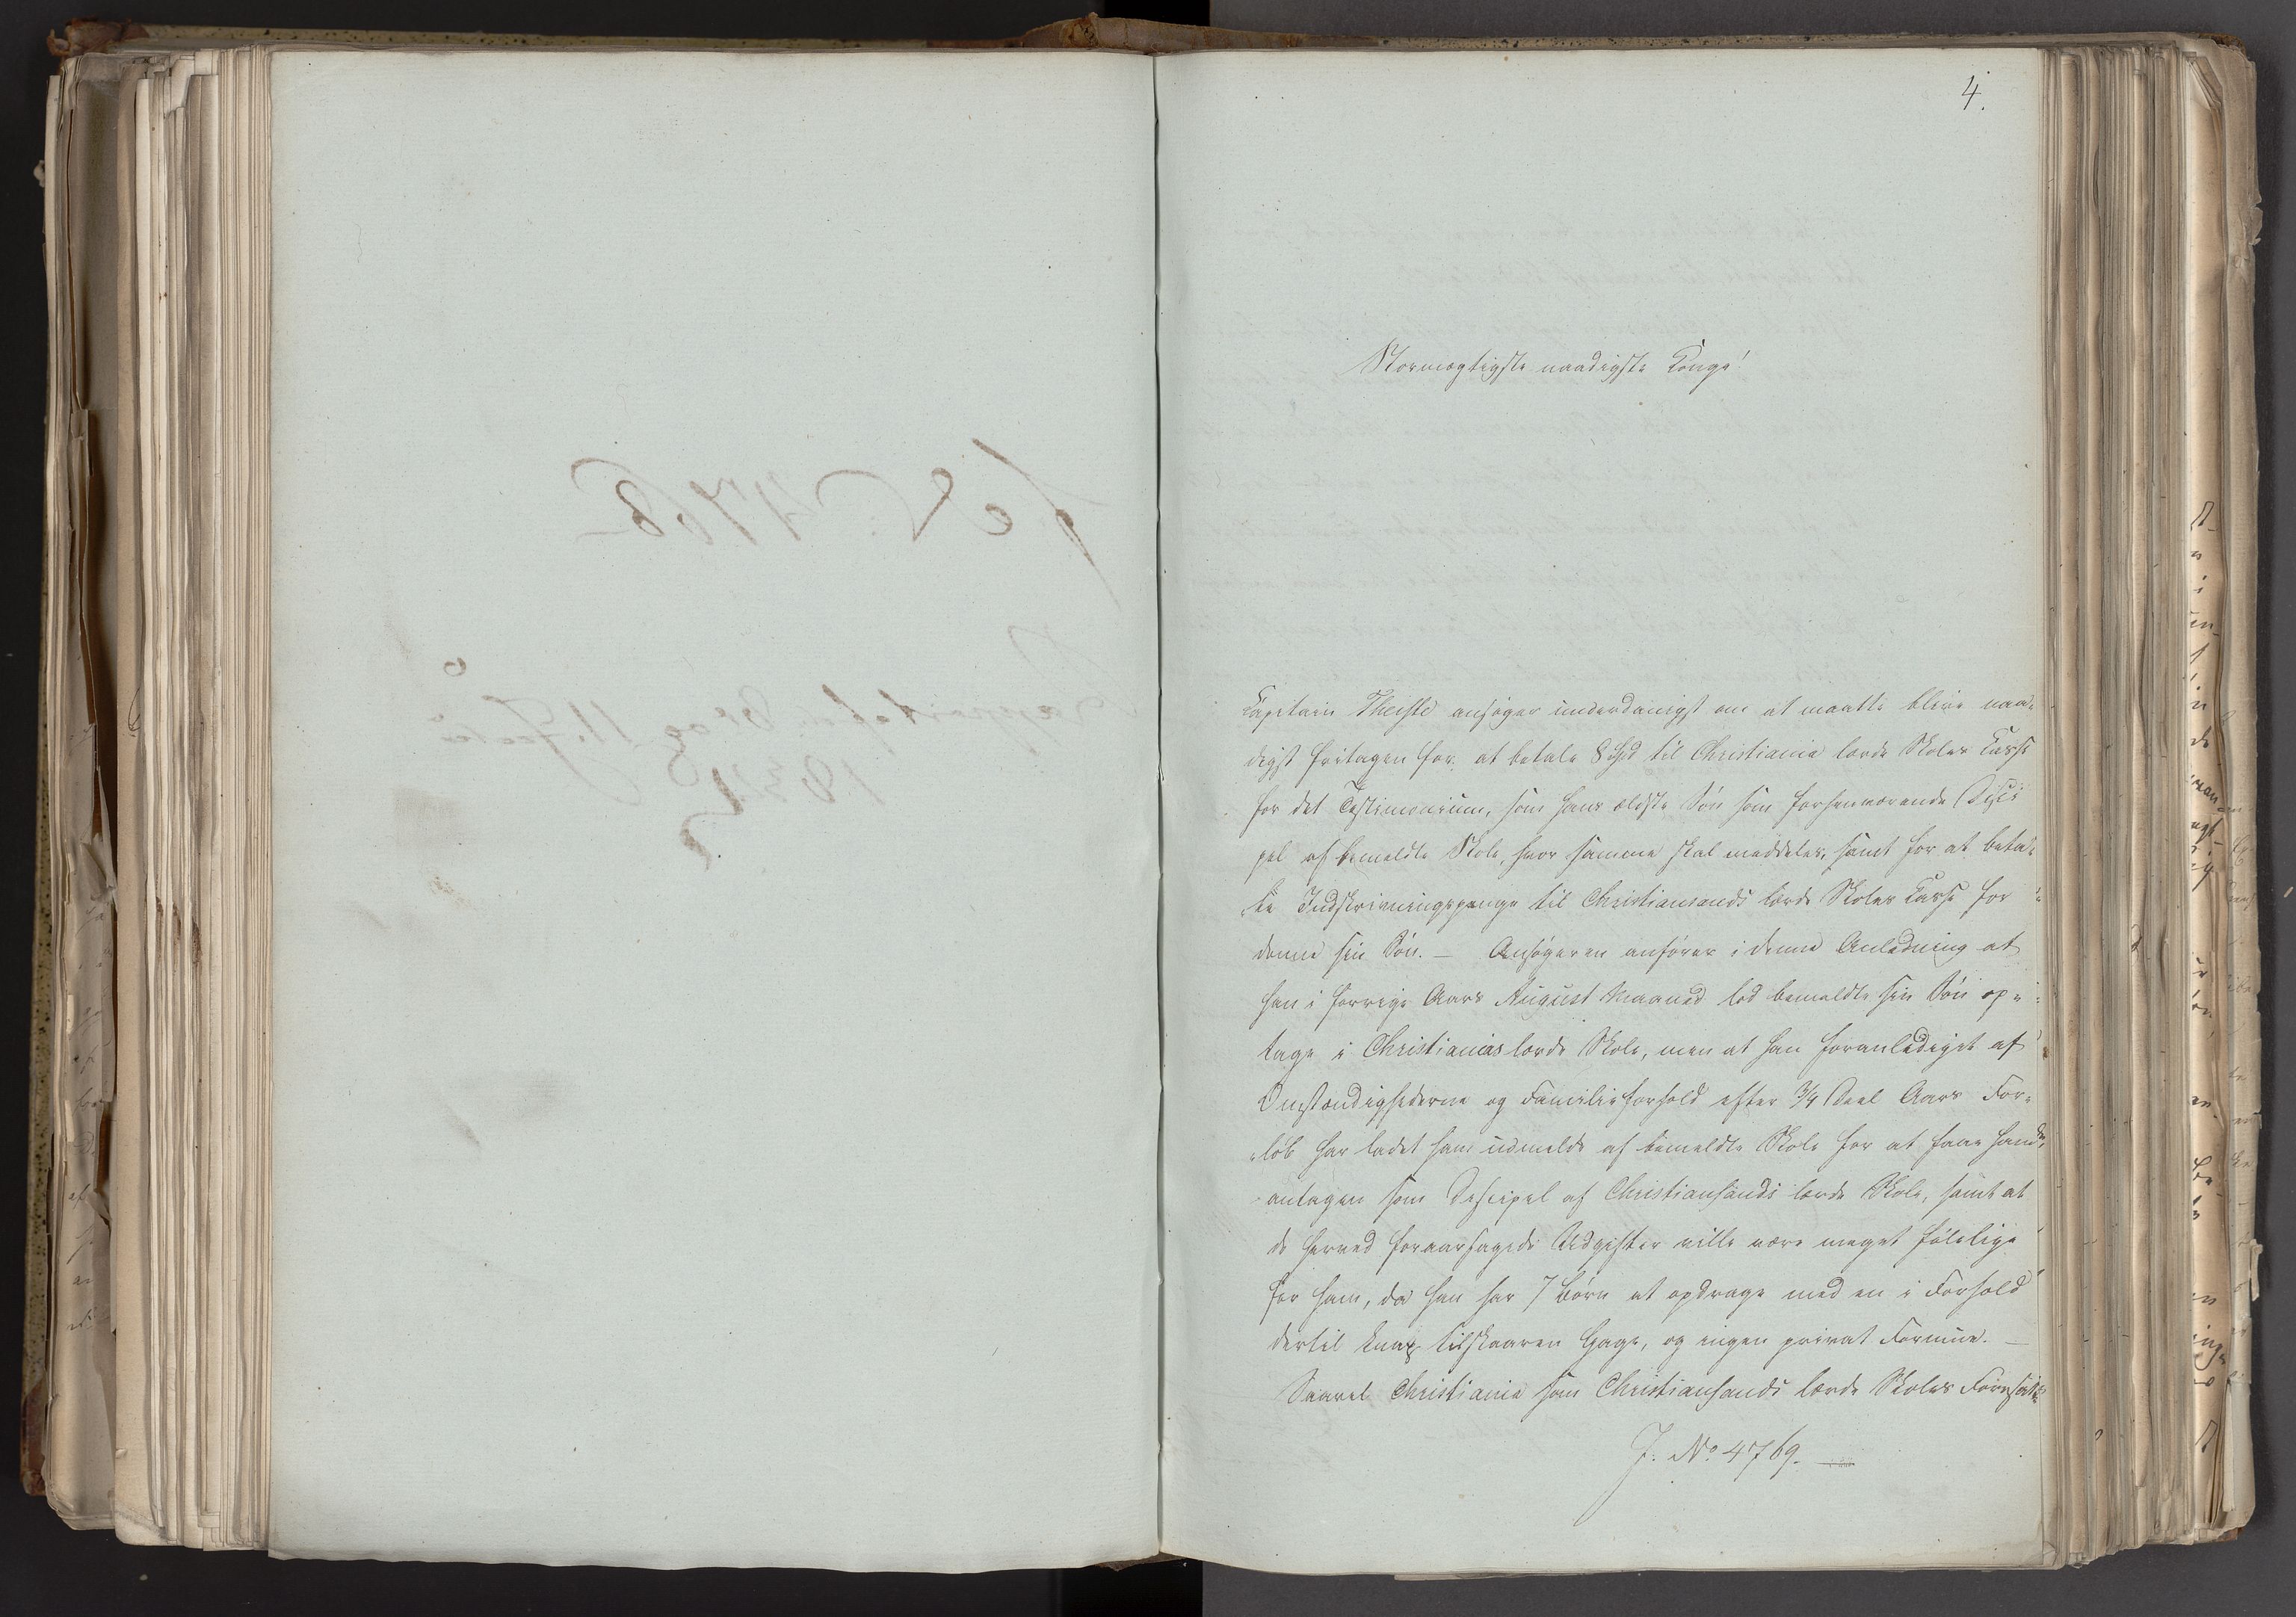 4.
Stormægtigste naadigste Konge!
Capitain Theiste ansøger underdanigst om at maatte blive naa-
digst fritagen for at betale 8 Spd til Christiania lærde Skoles Casse
for det Testimonium, som hans ældste Søn som forhenværende Disci
pel af bemeldte Skole, hvor samme skal meddeles, samt for at beta-
le Indskrivningspenge til Christiansands lærde Skoles Casse for
denne sin Søn. — Ansøgeren anfører i denne Anledning at
han i forrige Aars August Maaned lod bemeldte sin Søn op-
tage i Christianias lærde Skole, men at han foranlediget af
Omstændighederne og Familieforhold efter 3/4 Deel Aars For-
løb har ladet ham udmelde af bemeldte Skole for at faae ham
antagen som Discipel af Christiansands lærde Skole, samt at
de herved foraarsagede Udgifter ville være meget følelige
for ham, da han har 7 Børn at opdrage med en i Forhold
dertil knap tilskaaren Gage, og ingen privat Formue. —
Saavel Christiania som Christiansands lærde Skoles
J. No 4769.